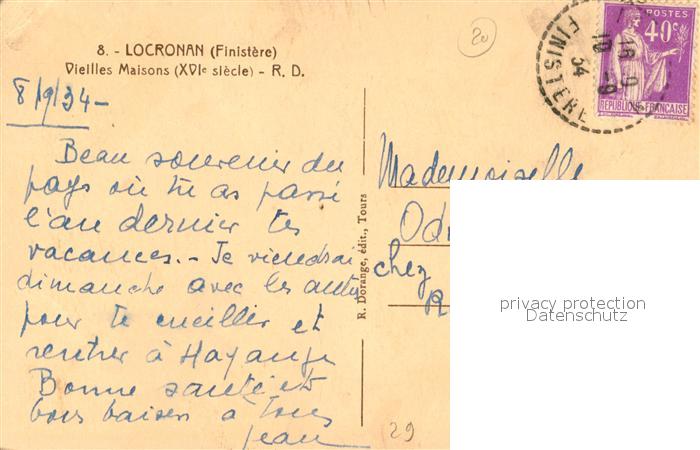 8. - LOCRONAN (Finistère)
Vieilles Maisons (XVIe siècle) - R. D.
8/9/34 -
Beau souvenir du
pays où tu as passé
l'an dernier tes
vacances. - Je viendrai
dimanche avec les autres
pour te cueillir et
rentrer à Hayange
Bonne santé et
bons baisers à tous
Jean
R. Dorange, édit., Tours
20
FINISTERE
POSTES
40c
REPUBLIQUE FRANÇAISE
Mademoiselle
Od
chez
R
privacy protection
Datenschutz
29